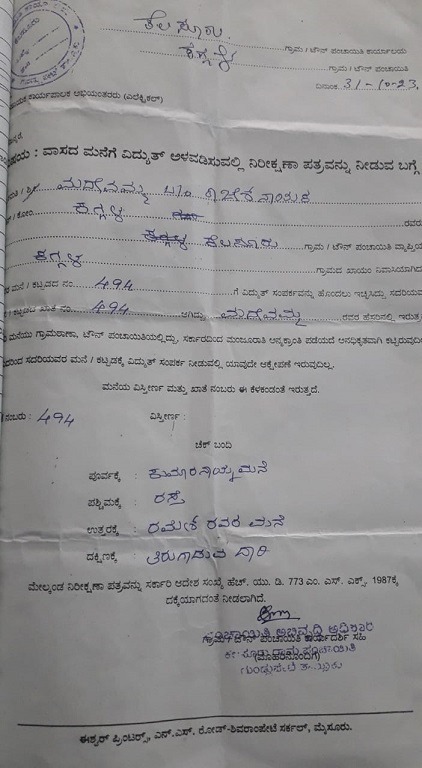 ಕೆಲಸೂರು
ಕಗ್ಗಳ ಗ್ರಾಮ / ಟೌನ್ ಪಂಚಾಯಿತಿ ಕಾರ್ಯಾಲಯ
ಗ್ರಾಮ / ಟೌನ್ ಪಂಚಾಯಿತಿ
ದಿನಾಂಕ 31-10-23
ಕಾರ್ಯಪಾಲಕ ಅಭಿಯಂತರರು (ಎಲೆಕ್ಟ್ರಿಕಲ್)
: ವಾಸದ ಮನೆಗೆ ವಿದ್ಯುತ್ ಅಳವಡಿಸುವಲ್ಲಿ ನಿರೀಕ್ಷಣಾ ಪತ್ರವನ್ನು ನೀಡುವ ಬಗ್ಗೆ
ಮದೇವಮ್ಮ
ಕಗ್ಗಳ ರವರ
ಕೆಲಸೂರು ಗ್ರಾಮ / ಟೌನ್ ಪಂಚಾಯಿತಿ ವ್ಯಾಪ್ತಿಯ
ಕಗ್ಗಳ ಗ್ರಾಮದ ಖಾಯಂ ನಿವಾಸಿಯಾಗಿದ
ಮನೆ / ಕಟ್ಟಡದ ನಂ. 494 ಗೆ ವಿದ್ಯುತ್ ಸಂಪರ್ಕವನ್ನು ಹೊಂದಲು ಇಚ್ಛಿಸಿದ್ದು ಸದರಿಯವ
ಖಾತೆ ನಂ. 494 ಆಗಿದ್ದು ಮದೇವಮ್ಮ ರವರ ಹೆಸರಿನಲ್ಲಿ ಇರುತ್ತ
ಮನೆಯು ಗ್ರಾಮಠಾಣಾ, ಟೌನ್ ಪಂಚಾಯಿತಿಯಲ್ಲಿದ್ದು, ಸರ್ಕಾರದಿಂದ ಮಂಜೂರಾತಿ ಅನ್ಯಕ್ರಾಂತಿ ಪಡೆಯದೆ ಅನಧಿಕೃತವಾಗಿ ಕಟ್ಟಿರುವುದಿ
ಸದರಿಯವರ ಮನೆ / ಕಟ್ಟಡಕ್ಕೆ ವಿದ್ಯುತ್ ಸಂಪರ್ಕ ನೀಡುವಲ್ಲಿ ಯಾವುದೇ ಆಕ್ಷೇಪಣೆ ಇರುವುದಿಲ್ಲ.
ಮನೆಯ ವಿಸ್ತೀರ್ಣ ಮತ್ತು ಖಾತೆ ನಂಬರು ಈ ಕೆಳಕಂಡಂತೆ ಇರುತ್ತದೆ.
ನಂಬರು : 494 ವಿಸ್ತೀರ್ಣ :
ಚೆಕ್ ಬಂದಿ
ಪೂರ್ವಕ್ಕೆ : ಕುಮಾರನಾಯ್ಕ ಮನೆ
ಪಶ್ಚಿಮಕ್ಕೆ : ರಸ್ತೆ
ಉತ್ತರಕ್ಕೆ : ರಮೇಶ ರವರ ಮನೆ
ದಕ್ಷಿಣಕ್ಕೆ : ತಿರುಗಾಡುವ ದಾರಿ
ಮೇಲ್ಕಂಡ ನಿರೀಕ್ಷಣಾ ಪತ್ರವನ್ನು ಸರ್ಕಾರಿ ಆದೇಶ ಸಂಖ್ಯೆ ಹೆಚ್. ಯು. ಡಿ. 773 ಎಂ. ಎನ್. ಎಕ್ಸ್. 1987ಕ್ಕೆ
ದಕ್ಕೆಯಾಗದಂತೆ ನೀಡಲಾಗಿದೆ.
ಪಂಚಾಯಿತಿ ಅಭಿವೃದ್ಧಿ ಅಧಿಕಾರಿ
ಗ್ರಾಮ / ಟೌನ್ ಪಂಚಾಯಿತಿ ಕಾರ್ಯದರ್ಶಿ ಸಹಿ
ಗ್ರಾಮ ಪಂಚಾಯಿತಿ
(ಮೊಹರಿನೊಂದಿಗೆ)
ಗುಂಡ್ಲುಪೇಟೆ ತಾಲ್ಲೂಕು
ಈಶ್ವರ್ ಪ್ರಿಂಟರ್ಸ್, ಎನ್.ಎಸ್. ರೋಡ್-ಶಿವರಾಂಪೇಟೆ ಸರ್ಕಲ್, ಮೈಸೂರು.